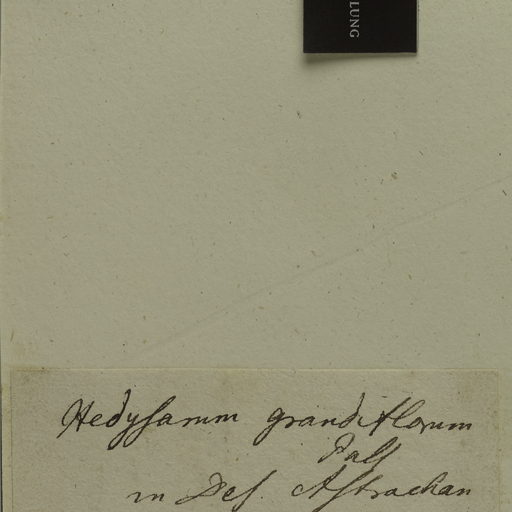 LUNG
Hedysarum grandiflorum
Pall
in Des. Astrachan